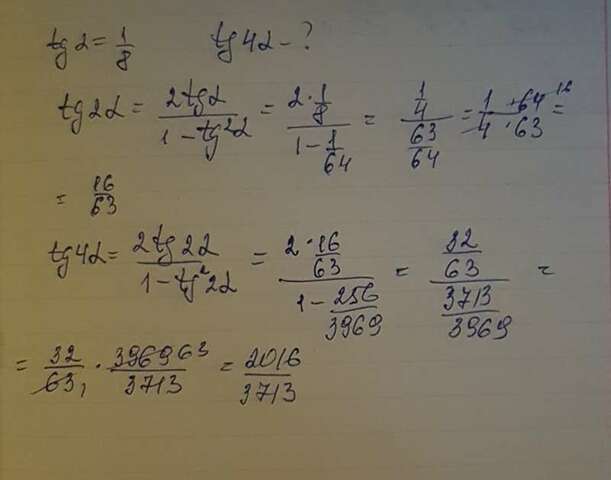 tg α = 1/8 tg 4α - ?
tg 2α = 2tg α / 1 - tg² α = 2 · 1/8 / 1 - 1/64 = 1/4 / 63/64 = 1 · 64 16 / 4 · 63 =
= 16/63
tg 4α = 2tg 2α / 1 - tg² 2α = 2 · 16/63 / 1 - 256/3969 = 32/63 / 3713/3969 =
= 32/63 1 · 3969 63 / 3713 = 2016/3713